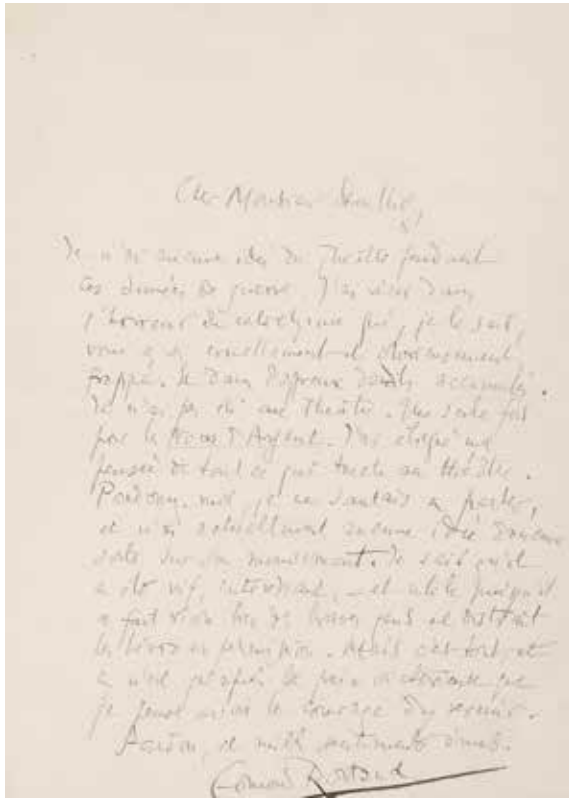 Cher Monsieur
Je n'ai aucune idée du Théâtre pendant
ces années de guerre. J'ai vécu dans
l'horreur du cataclysme qui, je le sais,
vous a cruellement et
frappé. Et dans d'affreux deuils accumulés.
Je n'ai pas été au Théâtre. Une seule fois
pour la d'Argent. J'ai éloigné ma
pensée de tout ce qui touche au théâtre.
Pardonnez-moi, je ne saurais en parler,
et n'ai actuellement aucune idée d'aucune
sorte sur son mouvement. Je sais qu'il
a été vif, intéressant, – et utile puisqu'il
a fait vivre de braves gens et distrait
les héros en permission. Mais c'est tout, et
ce n'est qu'après la paix victorieuse que
je pense avoir le courage d'y revenir.
Pardon, et mille sentiments émus.
Edmond Rostand